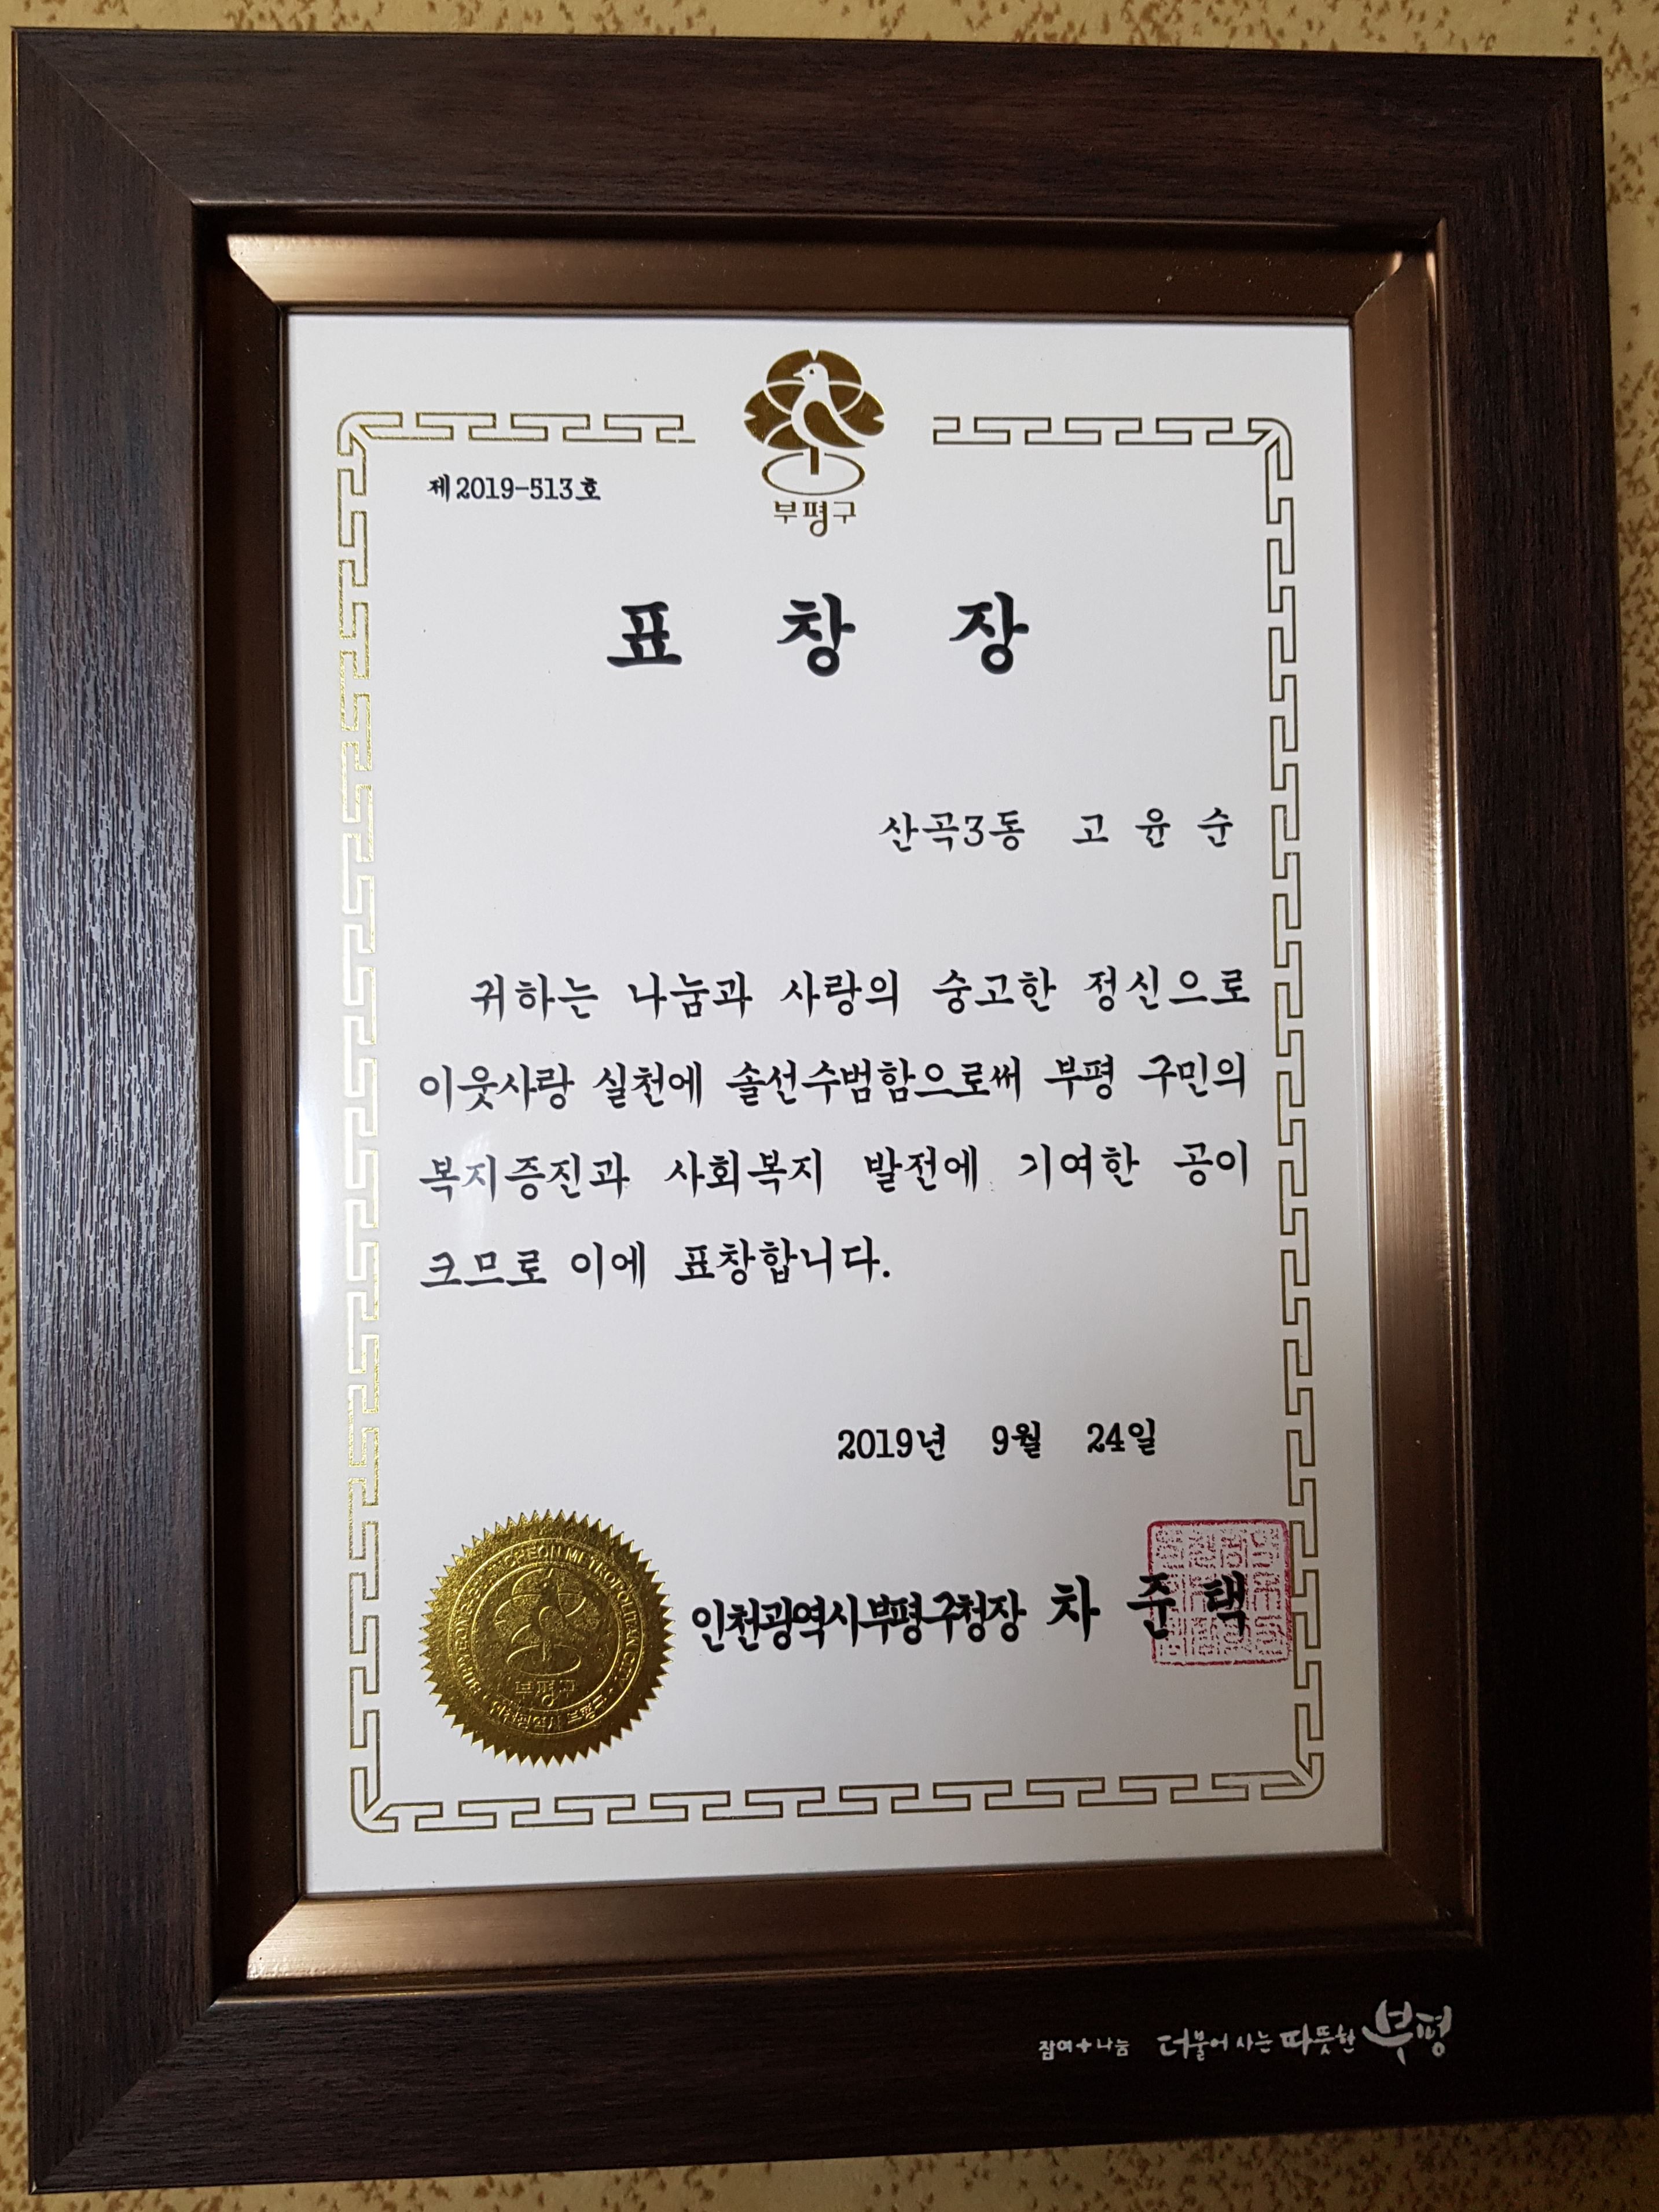 부평구
제2019-513호
표 창 장
산곡3동 고 윤 순
귀하는 나눔과 사랑의 숭고한 정신으로
이웃사랑 실천에 솔선수범함으로써 부평 구민의
복지증진과 사회복지 발전에 기여한 공이
크므로 이에 표창합니다.
2019년 9월 24일
인천광역시부평구청장 차 준 택
INCHEON METROPOLITAN CITY
부평구
인천광역시 부평구
참여+나눔 더불어 사는 따뜻한 부평